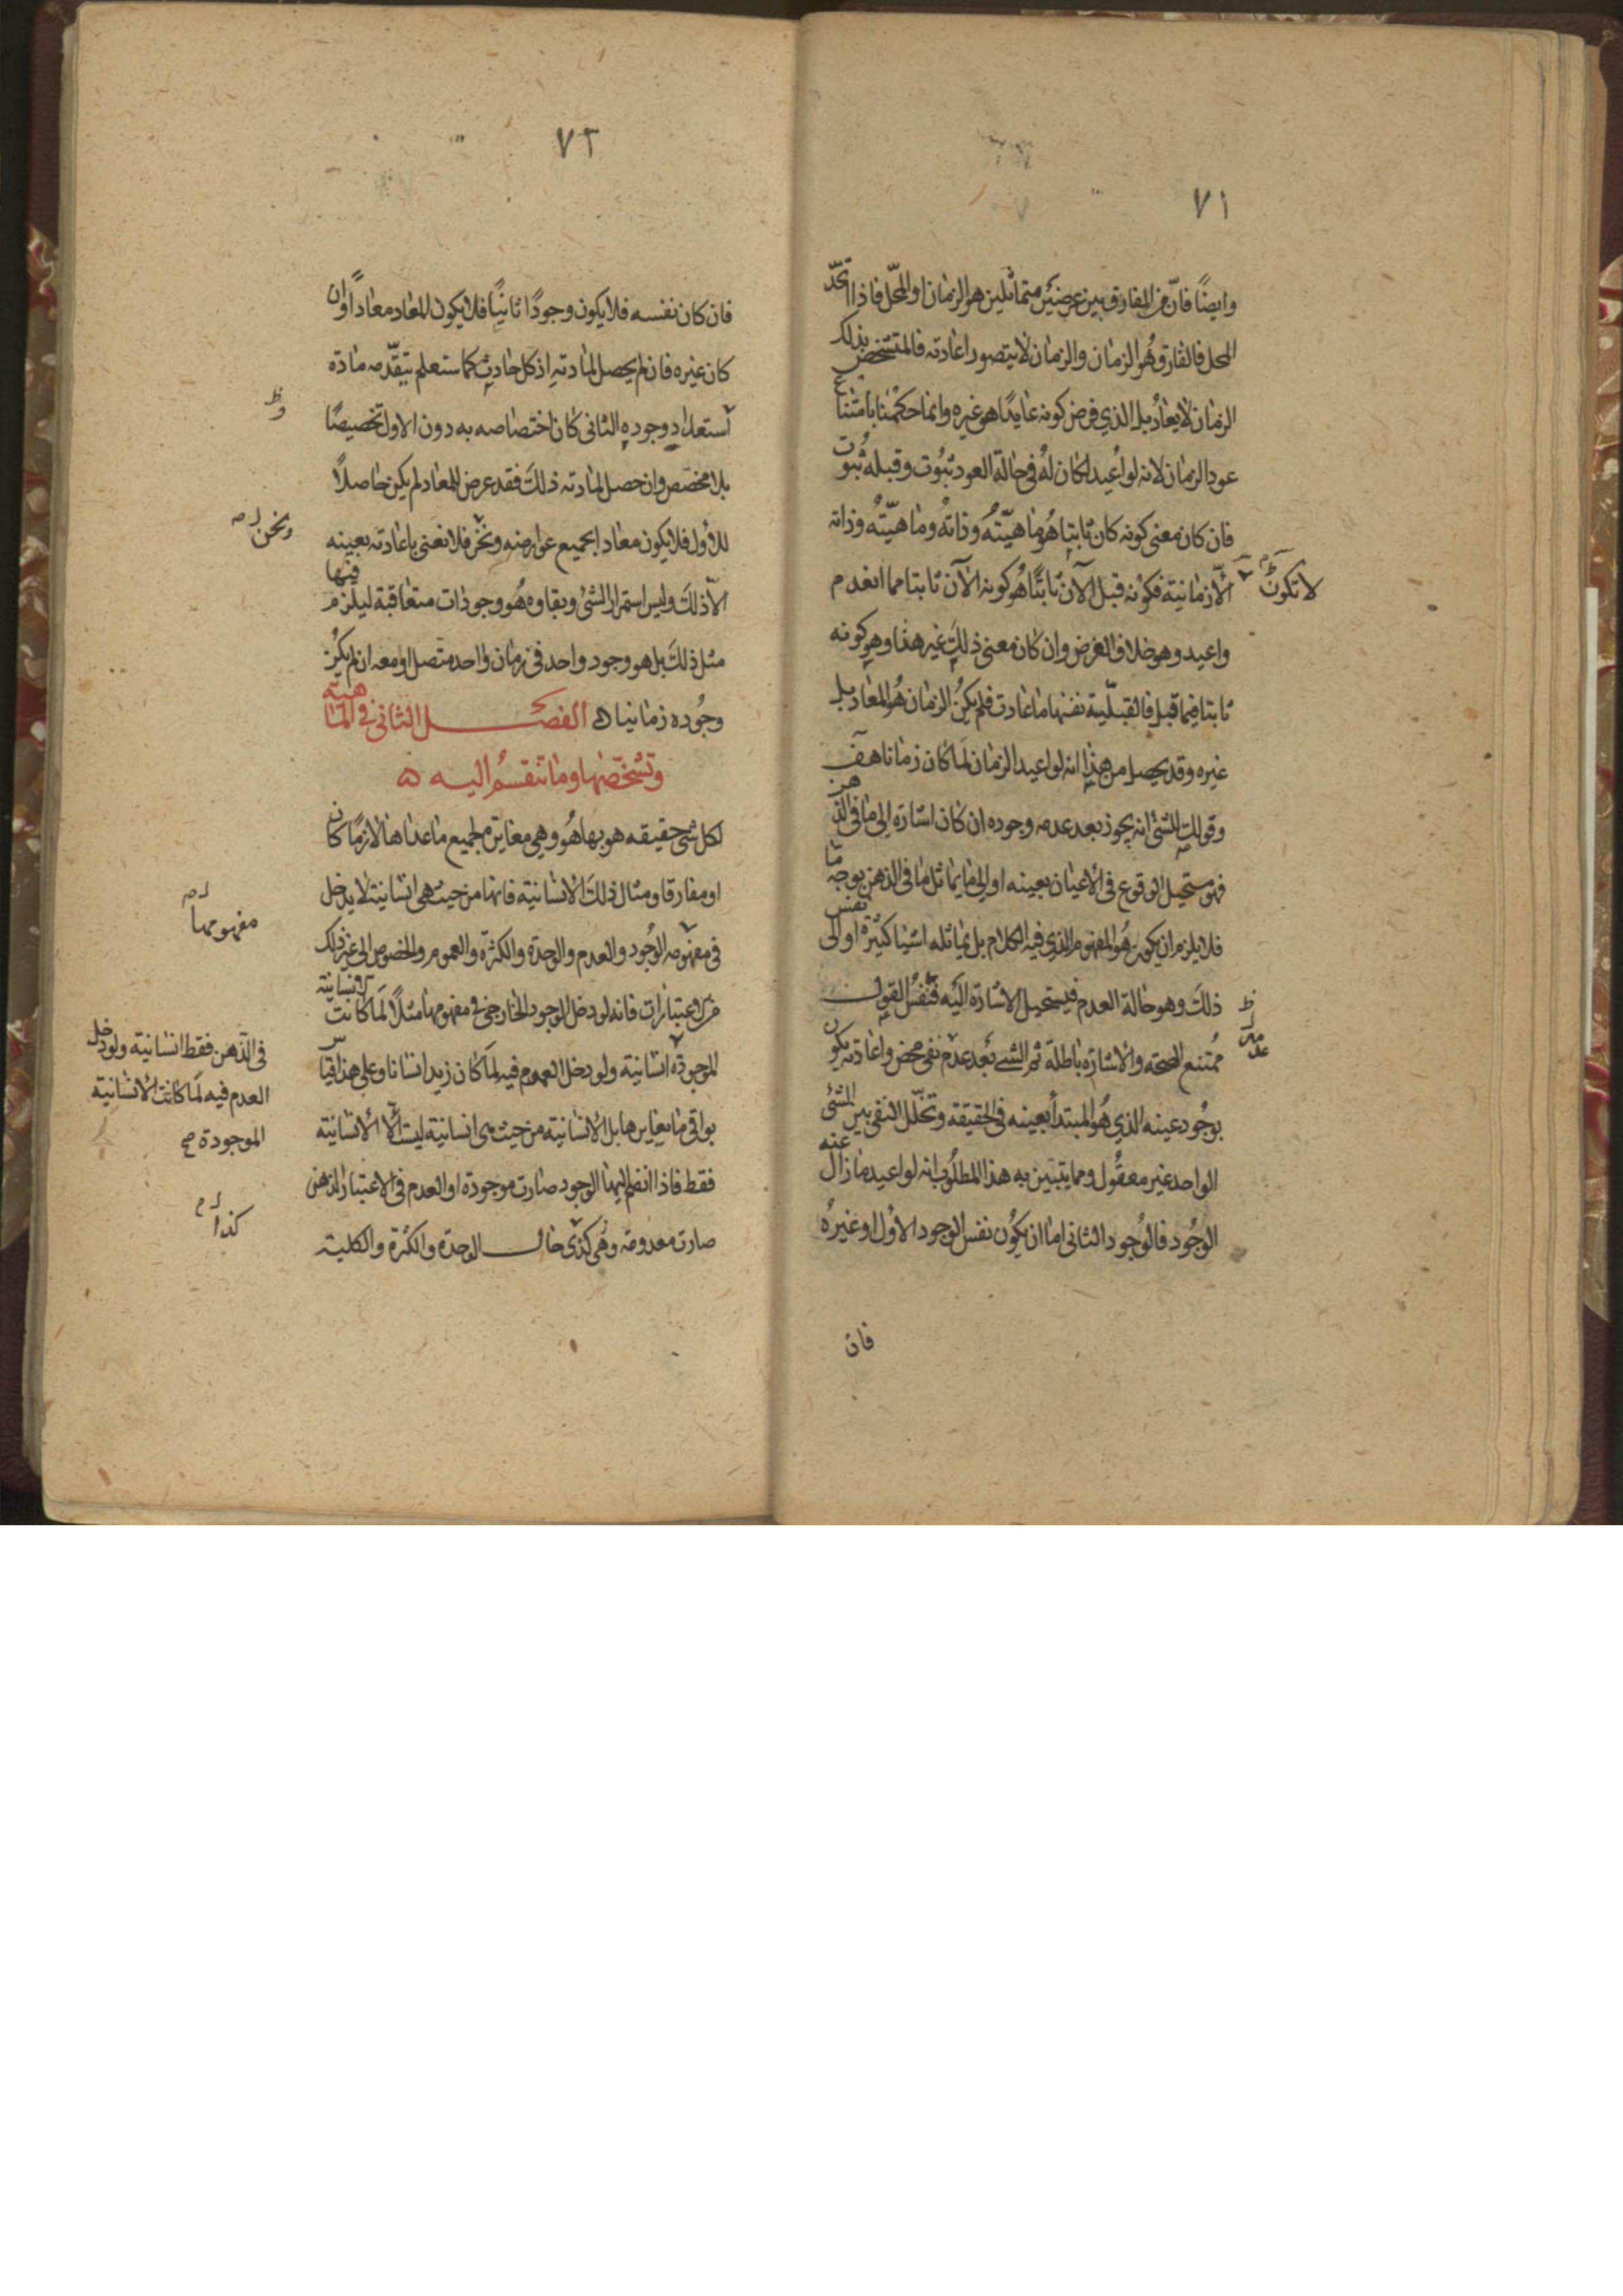 ٧١
وايضًا فانّ من المفارق بين عرضين متماثلين هو الزمان او المحلّ فاذا اتحّد
المحل فالفارق هُو الزمان والزمان لا يتصور اعادته فالمتشخص بذلك
الزمان لا يعادُ بل الذي فرض كونه عايدًا هو غيره وانما حكمنا بامتناع
عود الزمان لانه لو اُعيد لكان لهُ في حالة العود ثبُوت وقبله ثُبوت
فان كان معنى كونه كان ثابتا هُو ماهيّتُه وذاتهُ وماهيّتُه وذاته
لا تكون
الّا زمانية فكونه قبل الآن ثابتًا هُو كونه الآن ثابتا مما انعدم
واعيد وهو خلاف الفرض وان كان معنى ذلك غير هذا وهو كونه
ثابتا فيما قبل فالقبليّة نفسها ما اعادت فلم يكُن الزمان هُو المعاد بل
غيره وقد يحصل من هذا انه لو اعيد الزمان لما كان زمانا هف
وقولك للشئ انه يجوز بعد عدمه وجوده ان كان اشارة الى ما في الذهن
فهو مستحيل الوقوع في الاعيان بعينه او الى ما يماثل ما في الذهن بوجه مّا
فلا يلزم ان يكون هُو المفهوم الذي فيه الكلام بل يماثله اشيا كثيرة او الى نفس
ذلك وهو حالة العدم فيستحيل الاشارة اليه فنفسُ القول
ممُتنع الصحته والاشارة باطلة ثم الشے بَعد عدم نفى محض واعادته يكون
عدمه
بوجُود عينه الذي هُو المبتدأ بعينه في الحقيقة وتخلّل النفى بين الشئ
الواحد غير معقُول ومما يتبين به هذا المطلُوب انه لو اعيد ما زال عنه
الوجُود فالوُجود الثانى اما ان يكُون نفس الوجود الاوّل او غيرهُ
فان
٧٢
فان كان نفسه فلا يكون وجودًا ثانيًا فلا يكون المعاد معادًا وان
كان غيره فان لم يحصل لمادته اذ كل حادث كما ستعلم تتقدّمه مادة
استعداد وجوده الثانى كان اختصاصه به دون الاول تخصيصًا
بلا مخصص وان حصل لمادته ذلك فقد عرض للمعاد لم يكن حاصلًا
للأول فلا يكون معادا بجميع عوارضه ونحن فلا نعنى باعادته بعينه
ونحن
الّا ذلك وليس استمرار الشئ وبقاوه هُو وجودات متعاقبة ليلزم فيها
مثل ذلك بل هو وجود واحد في زمان واحد متصل او معه ان لم يكن
وجُوده زمانيا ه الفصل الثانى في الماهية
وتشخّصها وما تنقسمُ اليه ه
لكل شى حقيقه هو بها هُو وهي مغايرة لجميع ما عداها لازمًا كان
او مفارقا ومثال ذلك الانسانية فانها من حيث هى انسانية لا يدخل
في مفهومه الوُجود والعدم والوحدة والكثرة والعموم والخصوص الى غير ذلك
مفهومها
من الاعتبارات فانه لو دخل الوجود الخارجى في مفهومها مثلًا لما كانت الانسانية
الموجودة انسانية ولو دخل العموم فيه لما كان زيد انسانا وعلى هذا قياس
في الذهن فقط انسانية ولو دخل
العدم فيه لما كانت الانسانية
الموجودة صح
بواقى ما يغايرها بل الانسانية من حيث هى انسانية ليست الّا الانسانية
فقط فاذا انضم اليها الوجود صارت موجودة او العدم في الاعتبار الذهن
صارت معدومة وهُى كذى حال الوحدة والكثرة والكلية
كذا